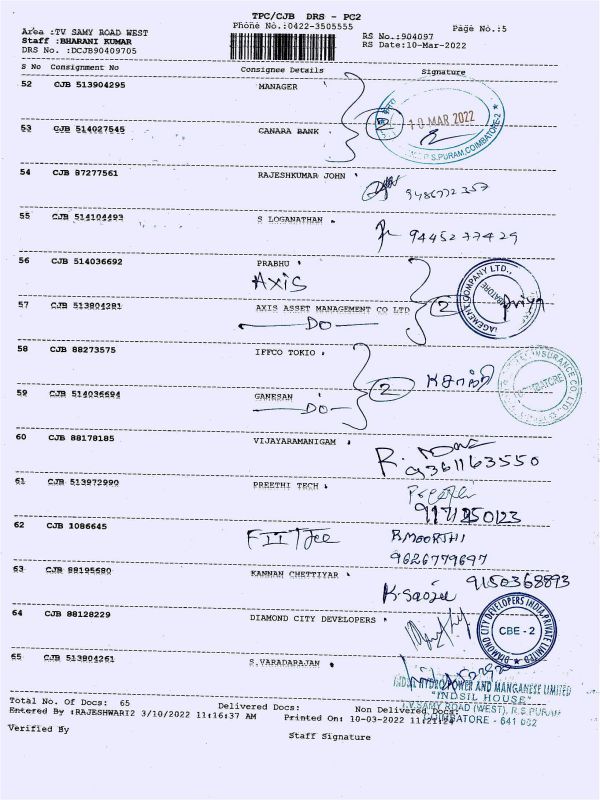 TPC/CJB DRS - PC2
Phone No.:0422-3505555
Page No.:5
Area :TV SAMY ROAD WEST
Staff :BHARANI KUMAR
DRS No. :DCJB90409705
RS No.:904097
RS Date:10-Mar-2022
S No Consignment No Consignee Details Signature
52 CJB 513904295 MANAGER
10 MAR 2022
53 CJB 514027545 CANARA BANK
2
R.S.PURAM, COIMBATORE-2
54 CJB 87277561 RAJESHKUMAR JOHN
9486772357
55 CJB 514104493 S LOGANATHAN
9445277429
56 CJB 514036692 PRABHU
AXIS
AGEMENT COMPANY LTD.,
57 CJB 513804281 AXIS ASSET MANAGEMENT CO LTD
2 priya
DO
58 CJB 88273575 IFFCO TOKIO
INSURANCE CO LTD.
COIMBATORE
2
59 CJB 514036694 GANESAN
DO
60 CJB 88178185 VIJAYARAMANIGAM
R.
9361163550
61 CJB 513972990 PREETHI TECH
Preethi
9171250123
62 CJB 1086645
FIITJee
B.MOORTHI
9626779697
63 CJB 88195680 KANNAN CHETTIYAR
9150368893
K.Saojee
64 CJB 88128229 DIAMOND CITY DEVELOPERS
DIAMOND CITY DEVELOPERS INDIA PRIVATE LIMITED
CBE - 2
65 CJB 513804261 S.VARADARAJAN
INDSIL HYDRO POWER AND MANGANESE LIMITED
"INDSIL HOUSE"
T.V.SAMY ROAD (WEST), R.S.PURAM
COIMBATORE - 641 002
Total No. Of Docs: 65 Delivered Docs: Non Delivered Docs:
Entered By :RAJESHWARI2 3/10/2022 11:16:37 AM Printed On: 10-03-2022 11:21:24
Verified By
Staff Signature